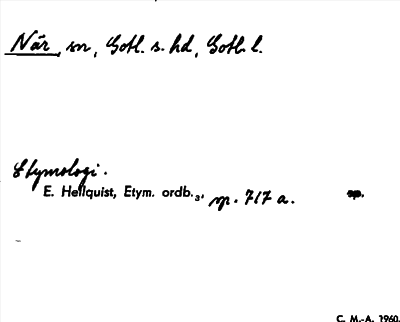 När, sn, Gotl. s. hd, Gotl. l.
Etymologi.
E. Hellquist, Etym. ordb.₃, sp. 717 a.
C. M.-A. 1960.